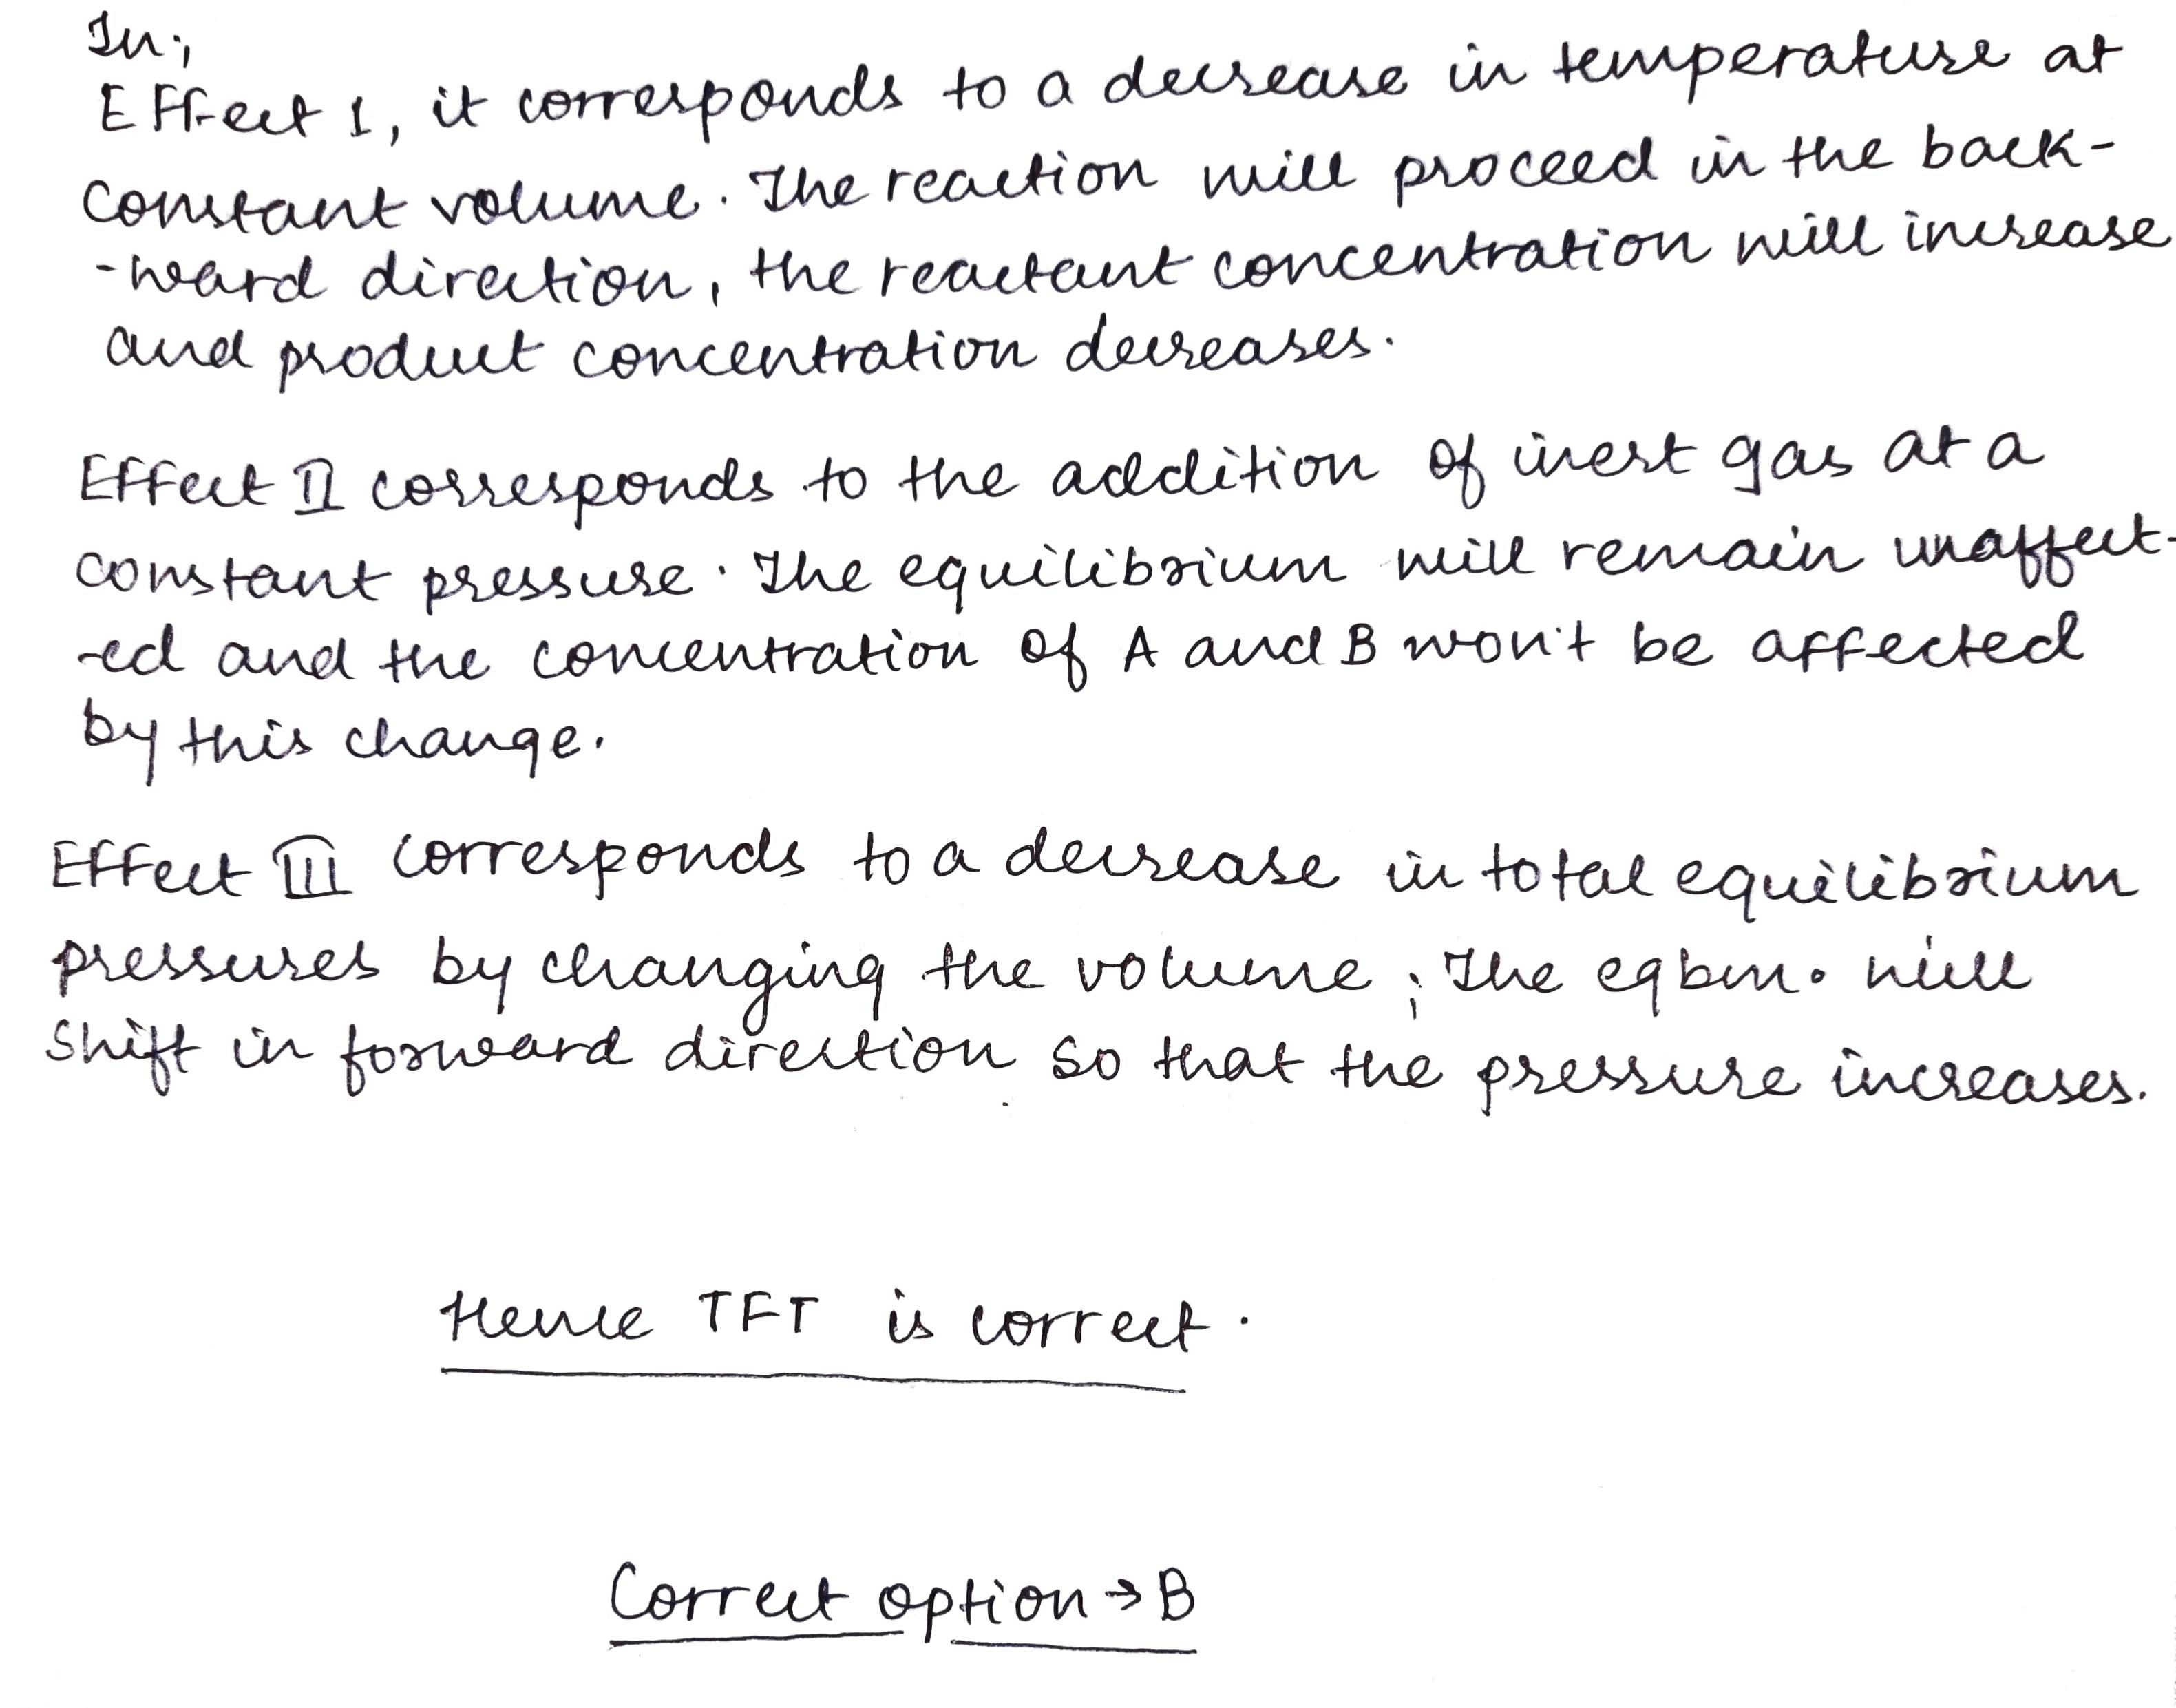 In;
Effect 1, it corresponds to a decrease in temperature at
constant volume. The reaction will proceed in the back-
-ward direction, the reactant concentration will increase
and product concentration decreases.
Effect II corresponds to the addition of inert gas at a
constant pressure. The equilibrium will remain unaffect-
-ed and the concentration of A and B won't be affected
by this change.
Effect III corresponds to a decrease in total equilibrium
pressures by changing the volume; The eqbm. will
shift in forward direction so that the pressure increases.
Hence TFT is correct.
Correct option → B